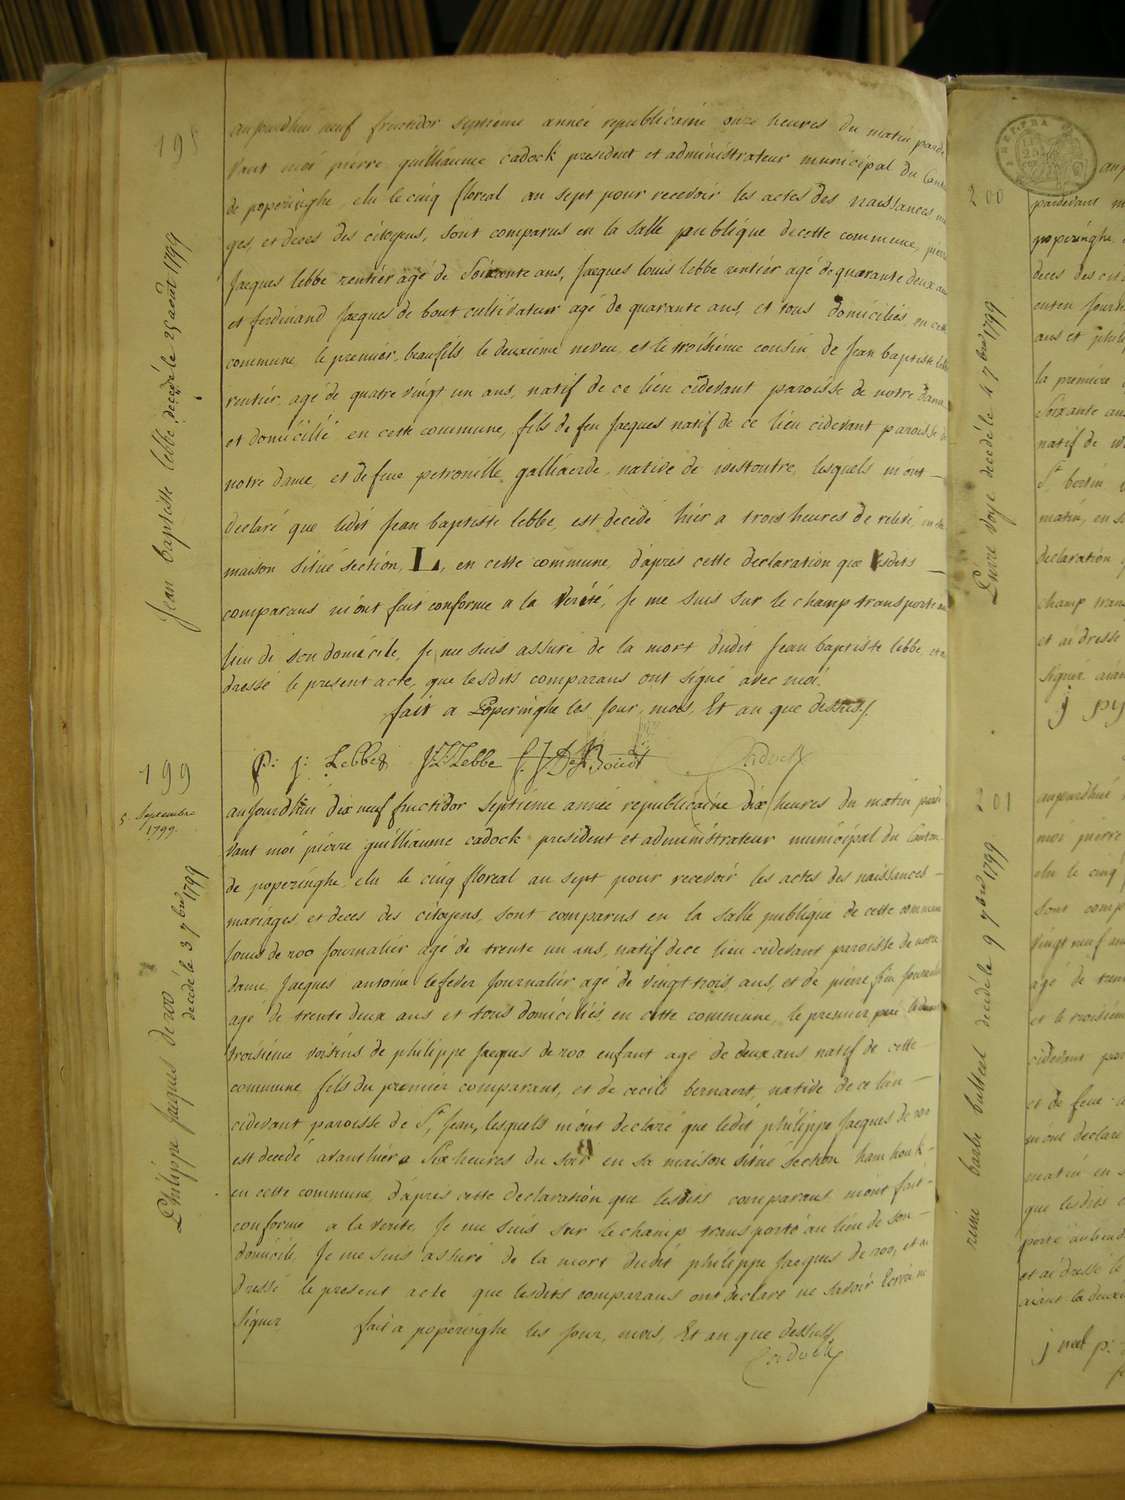 198
aujourdhui neuf fructidor septieme année republicaine onze heures du matin parde
vant moi pierre guilliaume cadock president et administrateur municipal du Canton
de poperinghe, elu le cinq floreal an sept pour recevoir les actes des naissances ma
ges, et deces des citoyens, sont comparus en la salle publique de cette commune, pierre
Jacques lebbe rentiér agé de soixante ans, Jacques louis lebbe rentiér agé de quarante deux ans
et ferdinand Jacques de bout cultivateur agé de quarante ans, et tous domiciliés en cette
commune, le premiér beaufils le deuxieme neveu, et le troisiéme cousin de Jean baptiste lebbe
rentiér agé de quatre vingt un ans, natif de ce lieu cidevant paroisse de notre dame
et domicilié en cette commune, fils de feu Jacques natif de ce lieu cidevant paroisse de
notre dame, et de feue petronille galliaerde, native de westoutre, lesquels m'ont —
declaré que ledit Jean baptiste lebbe, est decedé hiér a trois heures de relevé, en sa
maison situé section, L, en cette commune, d'apres cette declaration que lesdits —
comparans m'ont fait conforme a la verité, Je me suis sur le champ transporté au
lieu de son domicile, Je me suis assuré de la mort dudit Jean baptiste lebbe et ai
dressé le present acte, que lesdits comparans ont signé avec moi.
fait a Poperinghe les Jour, mois, Et an que dessus/.
P: J: Lebbe J L Lebbe F. J De Boudt Cadock
Jean baptiste lebbe decedé le 25 août 1799
199
5 Septembre
1799.
aujourdhui dix neuf fructidor septiéme année republicaine dix heures du matin parde
vant moi piérre guilliaume cadock president et administrateur municipal du Canton
de poperinghe, elu le cinq floreal an sept pour recevoir les actes des naissances —
mariages, et deces des citoyens, sont comparus en la salle publique de cette commune
louis de roo Journaliér agé de trente un ans, natif de ce lieu cidevant paroisse de notre
dame, Jacques antoine lefever Journaliér agé de vingt trois ans, et de piérre Journaliér
agé de trente deux ans et tous domiciliés en cette commune, le premier peré
troisiéme voisins de philippe Jacques de roo enfant agé de deux ans natif de cette —
commune, fils du premier comparant, et de cecile bernaert, native de ce lieu —
cidevant paroisse de St Jean, lesquels m'ont declaré que ledit philippe Jacques de roo
est decedé avanthiér a six heures du soir en sa maison situé section hamhouk —
en cette commune, d'apres cette declaration que lesdits comparans m'ont fait —
conforme a la verité, Je me suis sur le champ transporté au lieu de son —
domicile, Je me suis assuré de la mort dudit philippe Jacques de roo, et ai
dressé le present acte que lesdits comparans ont declaré ne savoir Ecrire ni
signer fait a poperinghe les Jour, mois, Et an que dessus/.
Cadock
Philippe Jacques deroo
decedé le 3 7bre 1799
200
decedé le 4 7bre 1799
pardevant m
poperinghe
deces des cit
ans et phili
la première
soixante ans
natif de
St bertin
matin, en s
declaration
champ trans
et ai dressé
201
aujourdhui
moi piérre
elu le cinq
sont comp
vingt neuf ans
agé de tren
et le troisiém
cidevant par
et de feue
m'ont declaré
matin en s
que lesdits
porté au lieu d
et ai dressé le
aiant la deuxi
reine barbe bulteel decedé le 9 7bre 1799